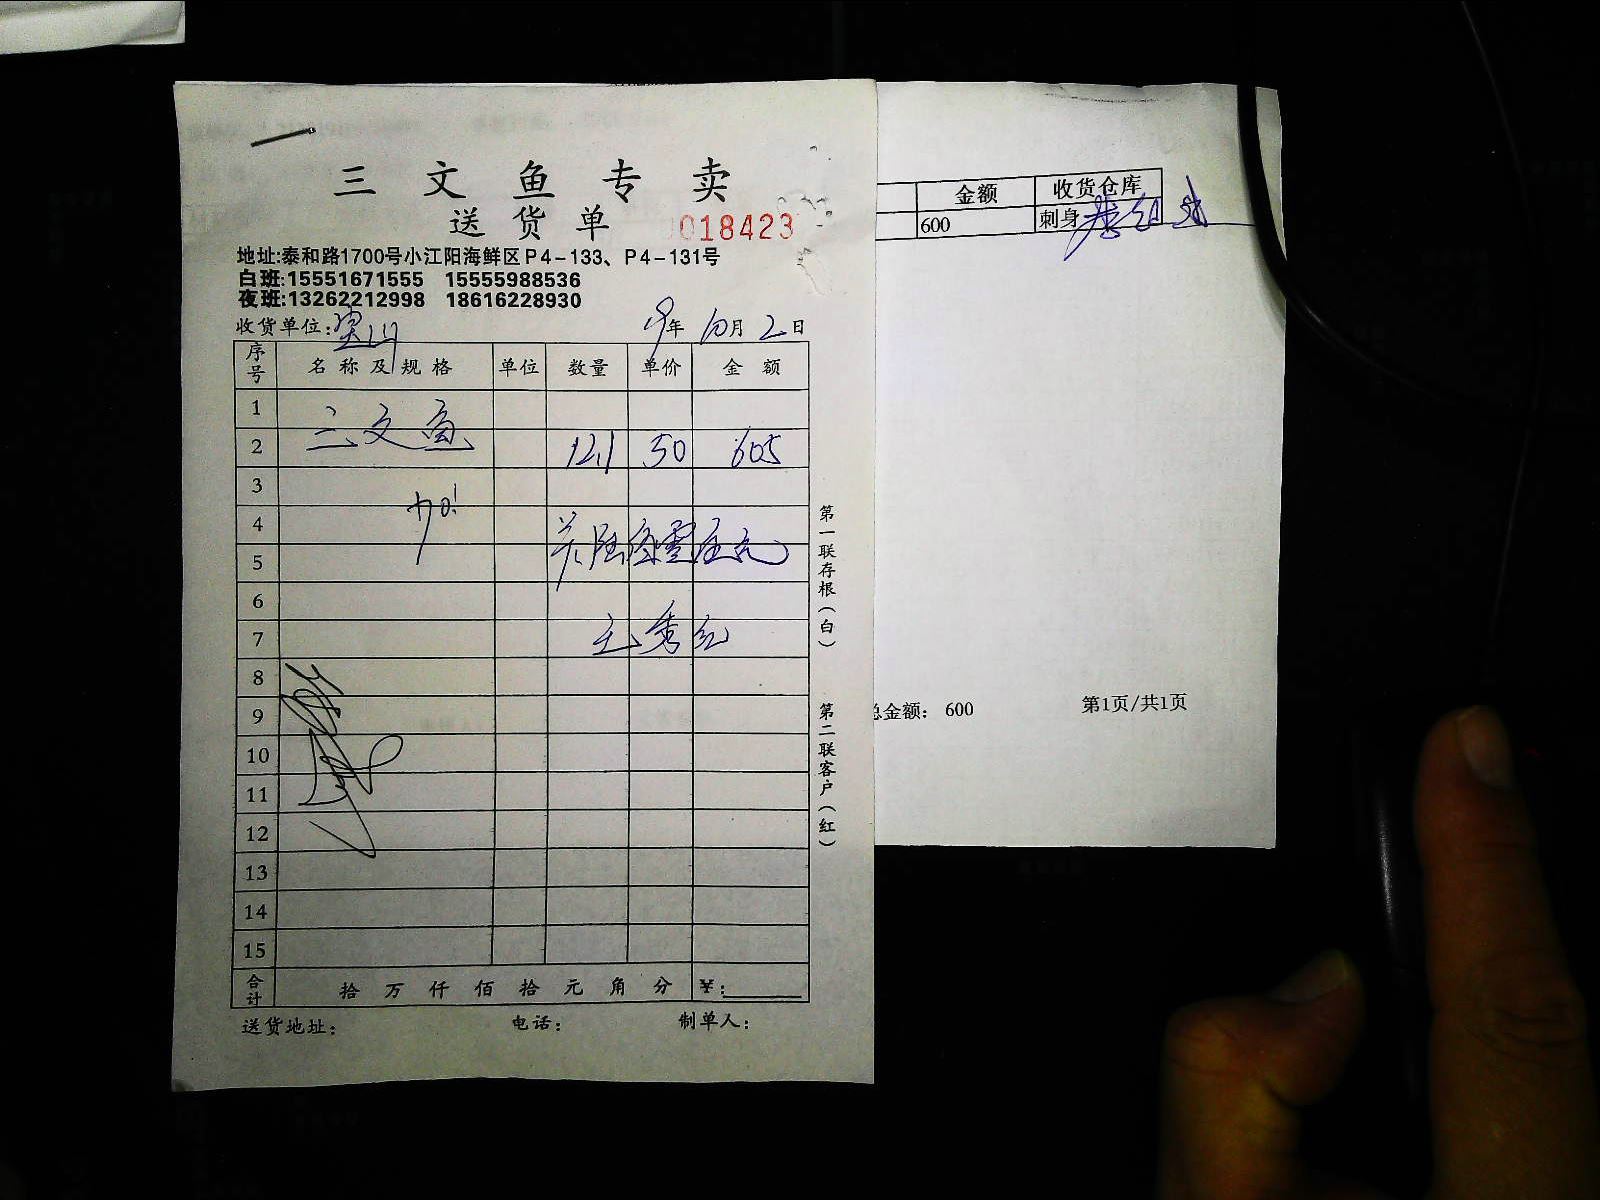 三文鱼专卖
送货单 018423
地址:泰和路1700号小江阳海鲜区P4-133、P4-131号
白班:15551671555 15555988536
夜班:13262212998 18616228930
收货单位: 9年10月2日
序号 名称及规格 单位 数量 单价 金额
1
2 三文鱼 12.1 50 605
3
4
5
6
7 王秀红
8
9
10
11
12
13
14
15
合计 拾万仟佰拾元角分 ¥:
送货地址: 电话: 制单人:
第一联存根(白)
第二联客户(红)
金额 收货仓库
600 刺身
总金额: 600 第1页/共1页